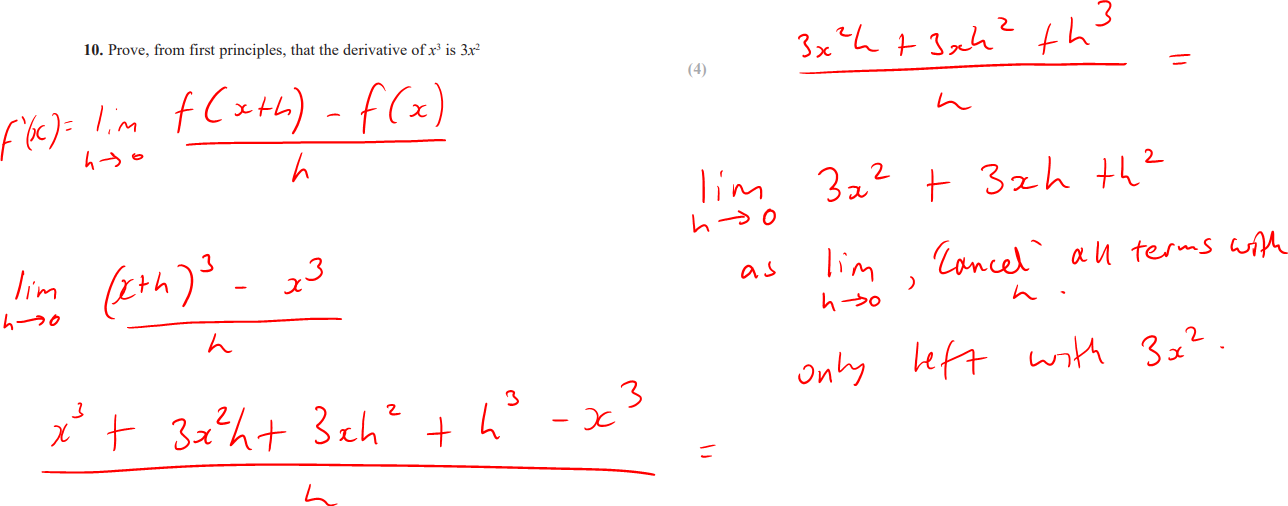 10. Prove, from first principles, that the derivative of x³ is 3x²
(4)
f'(x) = lim h→0 (f(x+h) - f(x)) / h
lim h→0 ((x+h)³ - x³) / h
(x³ + 3x²h + 3xh² + h³ - x³) / h =
(3x²h + 3xh² + h³) / h =
lim h→0 3x² + 3xh + h²
as lim h→0, "cancel" all terms with
h.
only left with 3x².